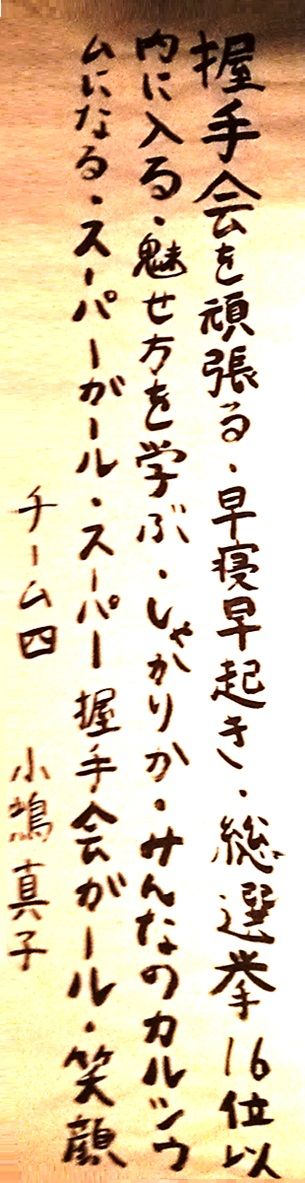 握手会を頑張る・早寝早起き・総選挙16位以
内に入る・魅せ方を学ぶ・しゃかりか・みんなのカルシウ
ムになる・スーパーガール・スーパー握手会ガール・笑顔
チーム四 小嶋真子